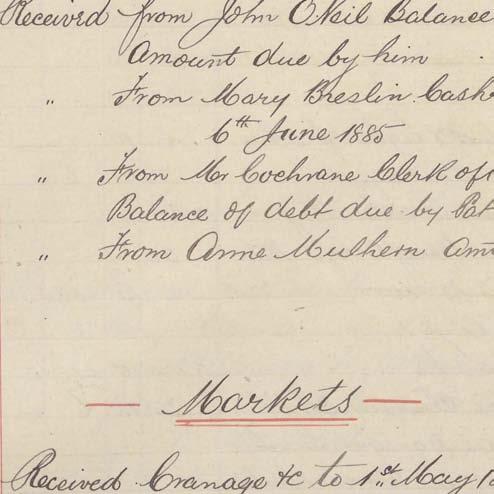 Received from John O'Neil Balance
Amount due by him
" From Mary Breslin Cash
6th June 1885
" From Mr Cochrane Clerk of
Balance of debt due by Pat
" From Anne Mulhern Am
Markets
Received Cranage &c to 1st May